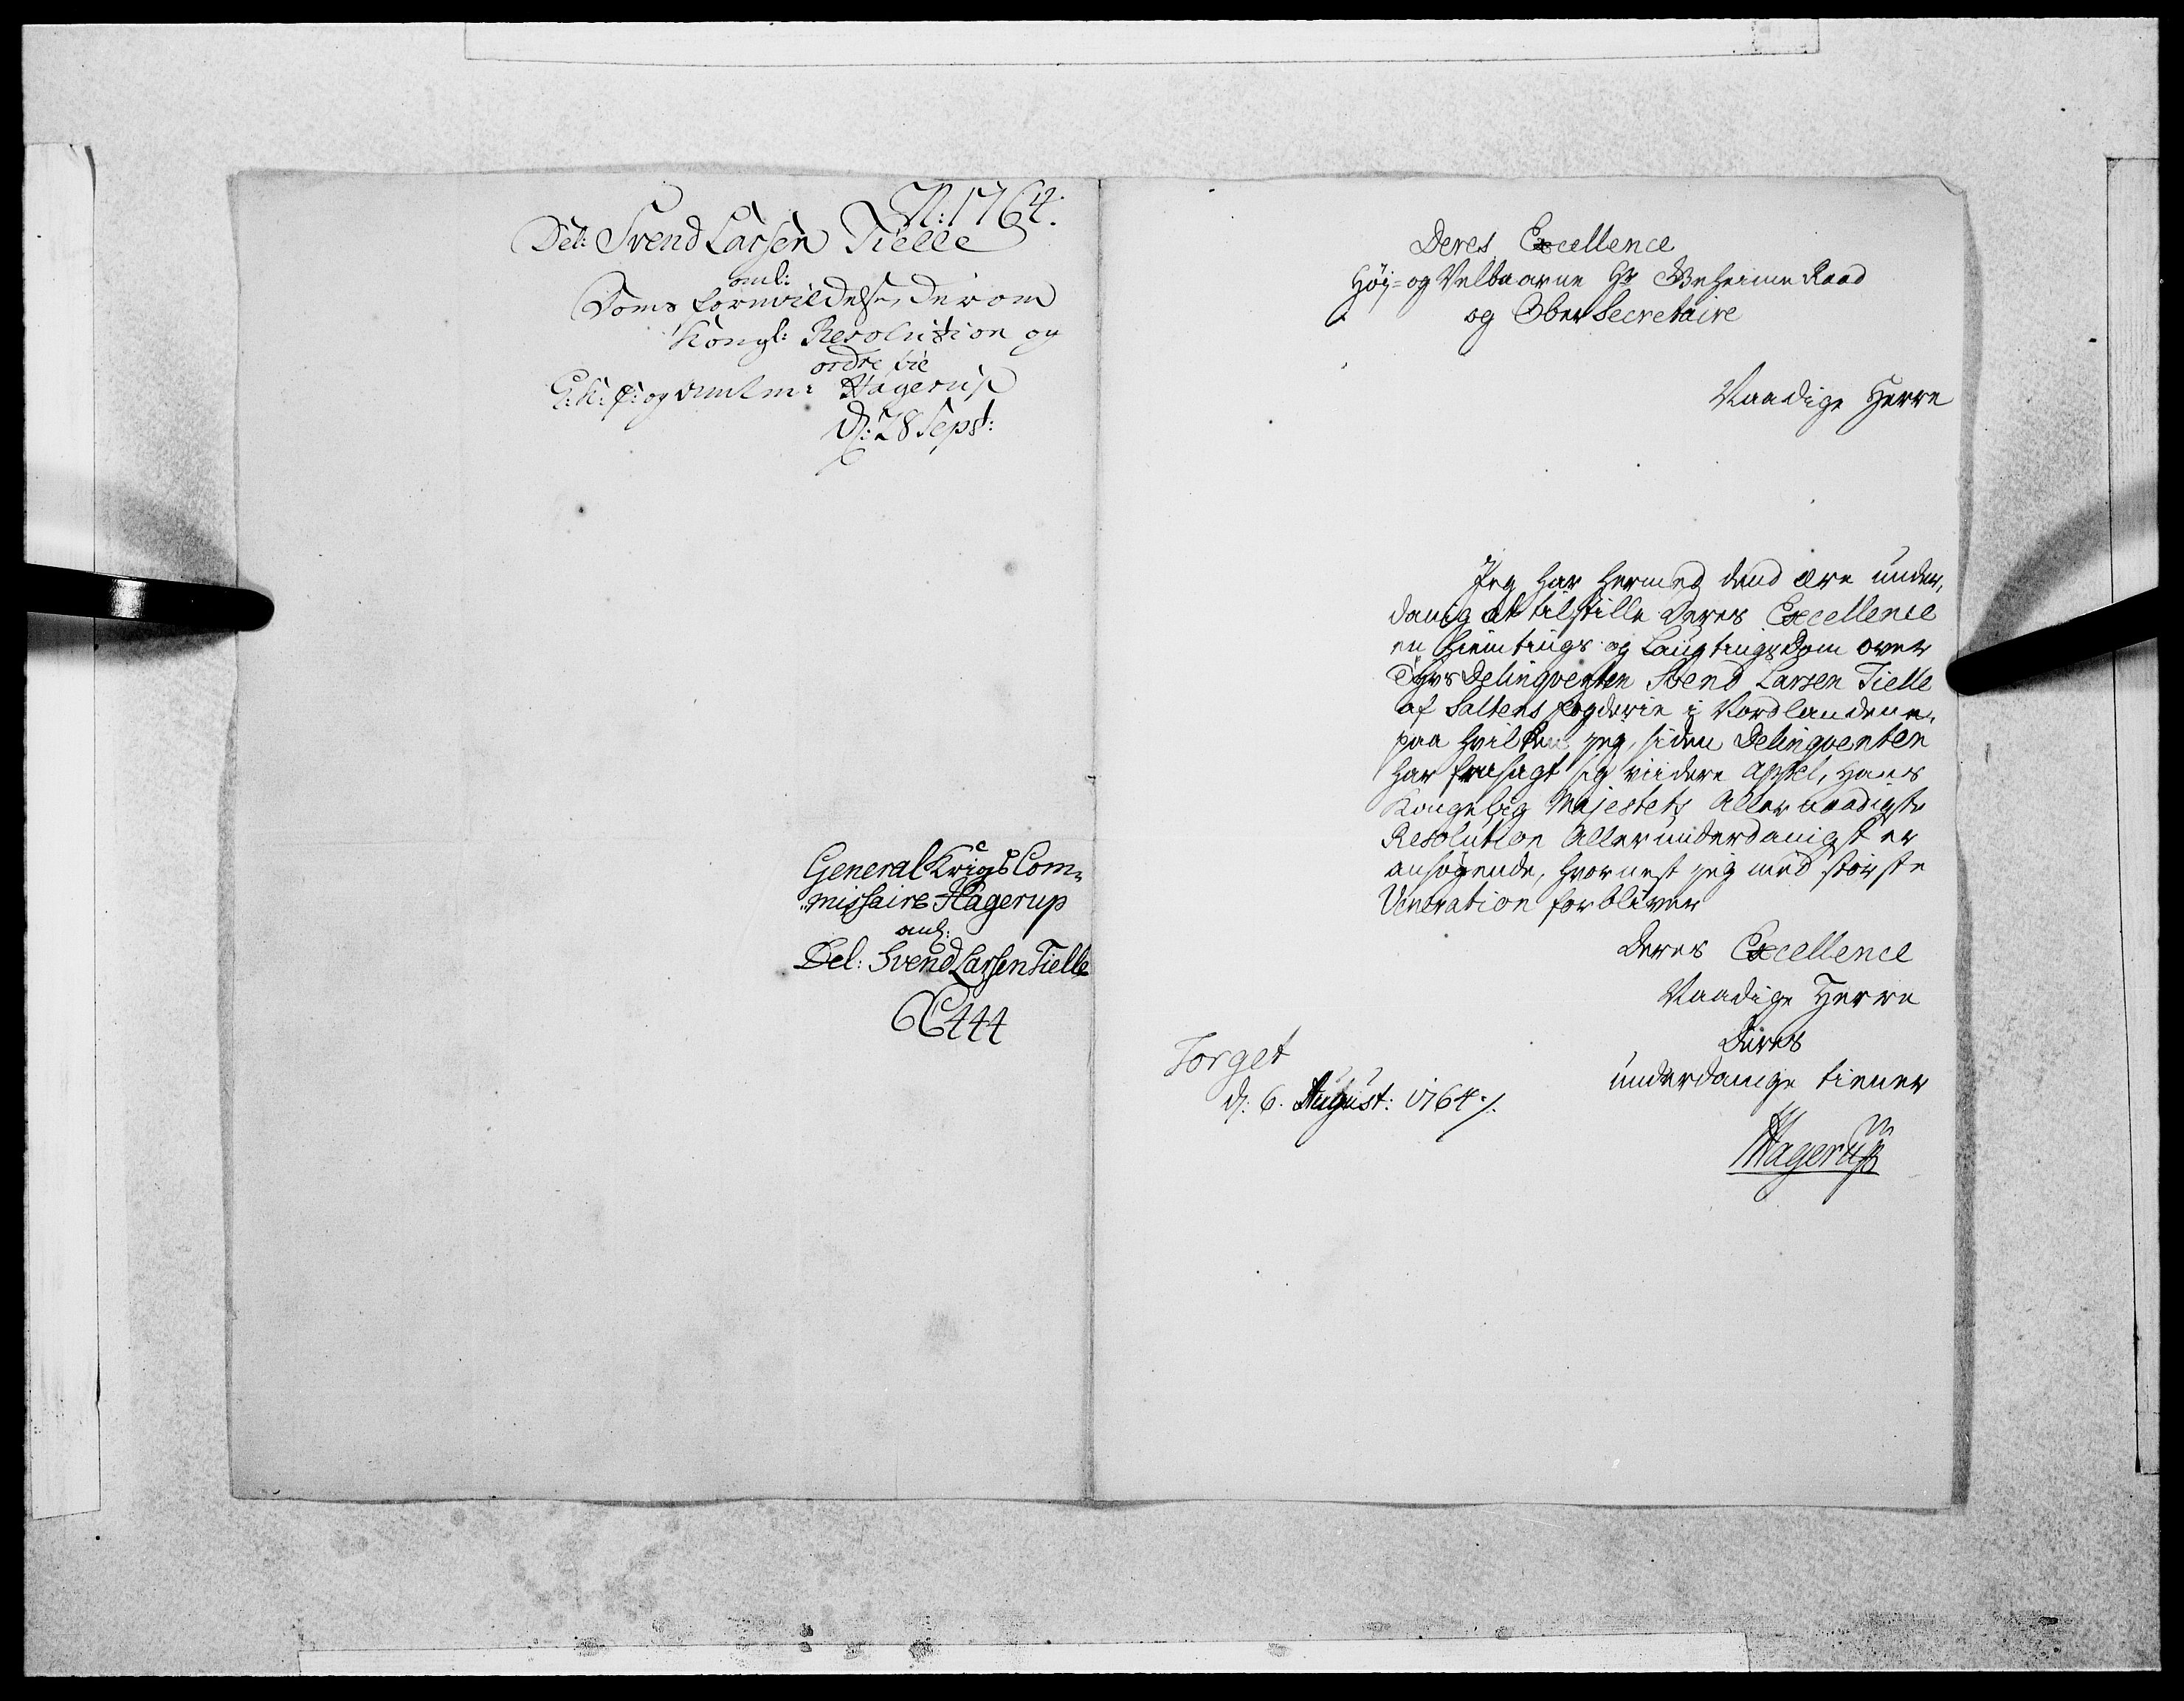 N: 1764.
Del: Svend Larsen Tielle
anl:
Doms formildelse, derom
Kongl: Resolution og
ordre til
G: K: C: og Amtm: Hagerup
d: 28 Sept:
General Krigs Com„
„missaire Hagerup
anl:
Del: Svend Larsen Tielle
444
Deres Excellence
Høj- og Velbaarne Hr Geheime Raad
og Ober Secretaire
Naadige Herre
Jeg har hermed dend ære under„
danig at tilstille Deres Excellence
en Hiemtings og Laugtingsdom over
Tyvs Delinqventen Svend Larsen Tielle
af Saltens fogderie i Nordlandene,
paa hvilken jeg, siden Delinqventen
har frasagt sig viidere Appel, Hans
Kongelig Majestets Allernaadigste
Resolution Allerunderdanigst er
ansøgende, hvornest jeg med største
Veneration forbliver
Deres Excellence
Naadige Herre
Deres
underdanige tiener
Hagerup
Torget
d: 6. August: 1764 ⁒